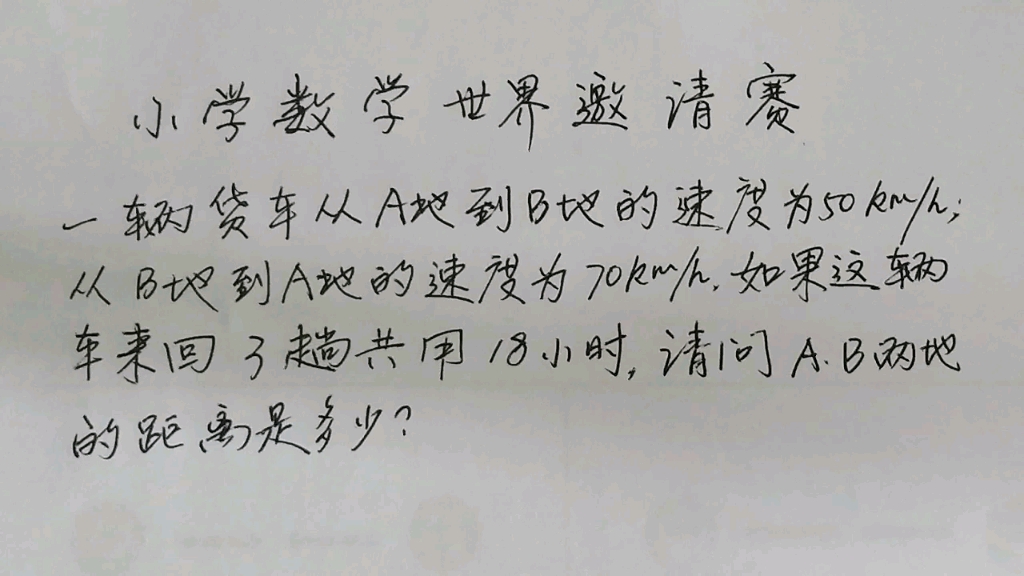 小学数学世界邀请赛
一辆货车从A地到B地的速度为50km/h;
从B地到A地的速度为70km/h.如果这辆
车来回3趟共用18小时,请问A.B两地
的距离是多少?